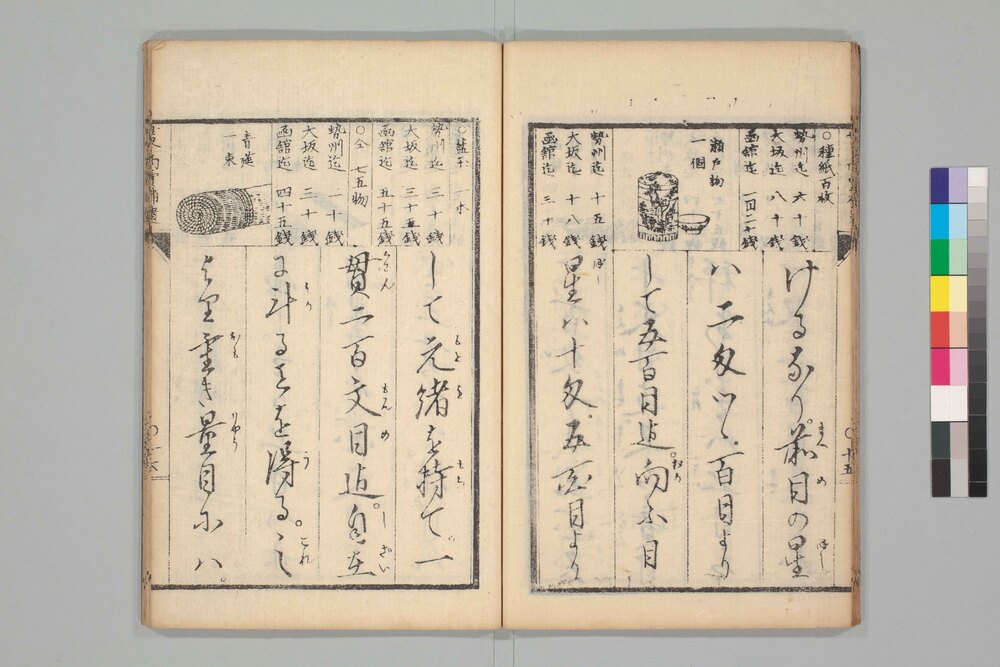 ○種紙百枚
勢州迄 六十銭
大坂迄 八十銭
函館迄 一円二十銭
瀬戸物
一個
勢州迄 十五銭
大坂迄 十八銭
函館迄 三十銭
けるあり。前目の星
ハ二匁ツヽ。百目より
して五百目迄向ふ目
星ハ十匁。五百目より
十五
○藍玉 一本
勢州迄 三十銭
大坂迄 三十五銭
函館迄 五十五銭
○仝 七五物
勢州迄 二十銭
大坂迄 三十銭
函館迄 四十五銭
青莚
一束
して元緒を持て。一
貫二百文目迄。自在
に計るを得る。之
より重き量目にハ。